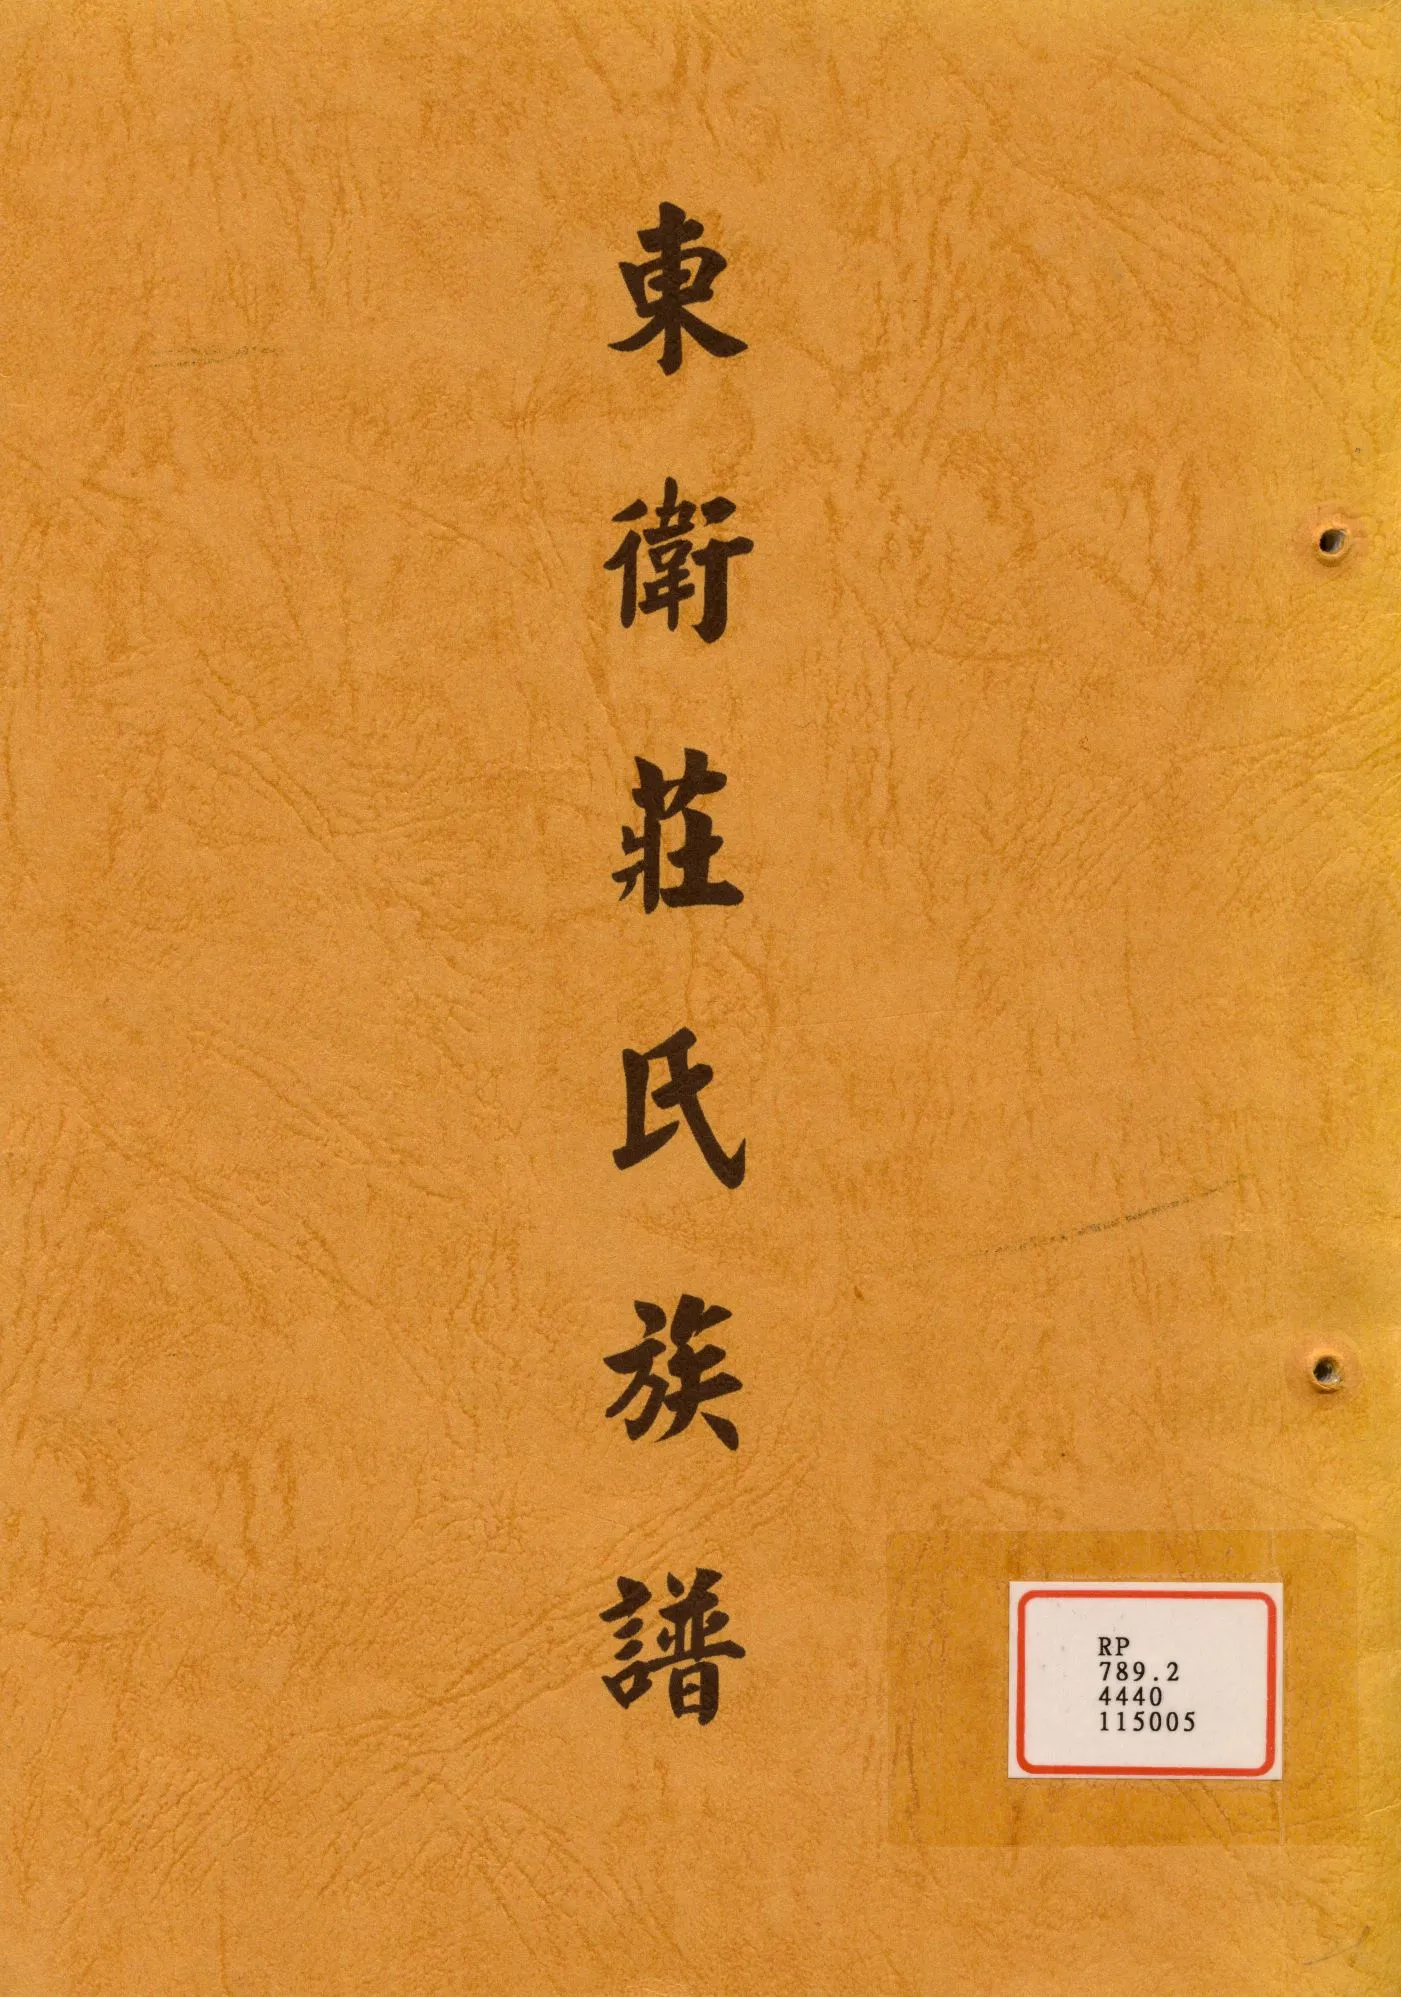 東衛莊氏族譜
RP
789.2
4440
115005